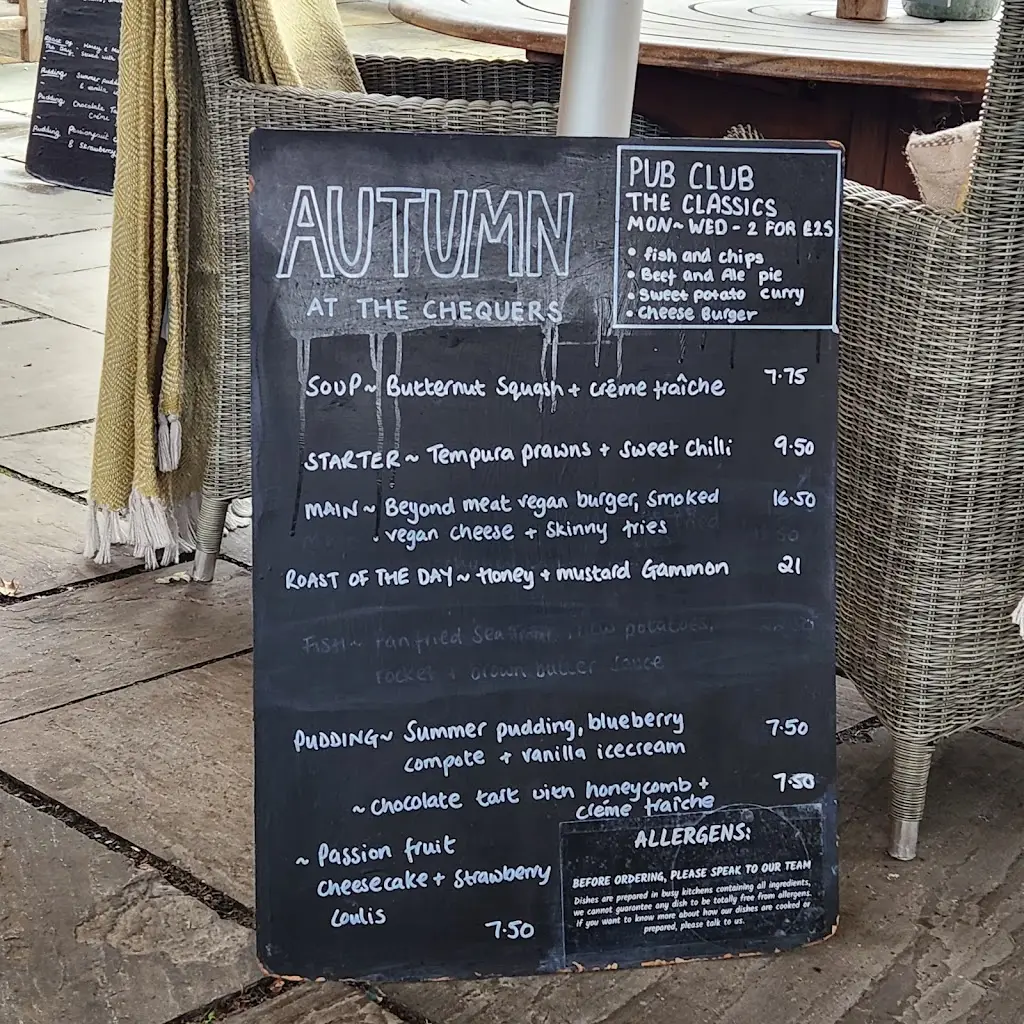 AUTUMN
AT THE CHEQUERS
PUB CLUB
THE CLASSICS
MON~WED - 2 FOR £25
• fish and chips
• Beef and Ale pie
• Sweet potato curry
• Cheese Burger
SOUP~ Butternut Squash + créme fraîche 7.75
STARTER~ Tempura prawns + sweet chilli 9.50
MAIN~ Beyond meat vegan burger, smoked 16.50
vegan cheese + skinny fries
ROAST OF THE DAY~ Honey + mustard Gammon 21
FISH~ Pan fried Sea potatoes,
rocket + brown butter sauce
PUDDING~ Summer pudding, blueberry 7.50
compote + vanilla icecream
~ chocolate tart with honeycomb + 7.50
créme fraîche
~ Passion fruit
cheesecake + strawberry
coulis
7.50
ALLERGENS:
BEFORE ORDERING, PLEASE SPEAK TO OUR TEAM
Dishes are prepared in busy kitchens containing all ingredients,
we cannot guarantee any dish to be totally free from allergens.
If you want to know more about how our dishes are cooked or
prepared, please talk to us.
Pudding Summer
& vanilla
Pudding Chocolate
Créme
Pudding Passionfruit
& strawberry